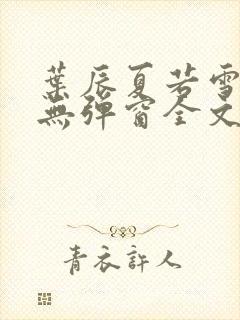 葉辰夏若雪
無彈窗全文
青衣許人